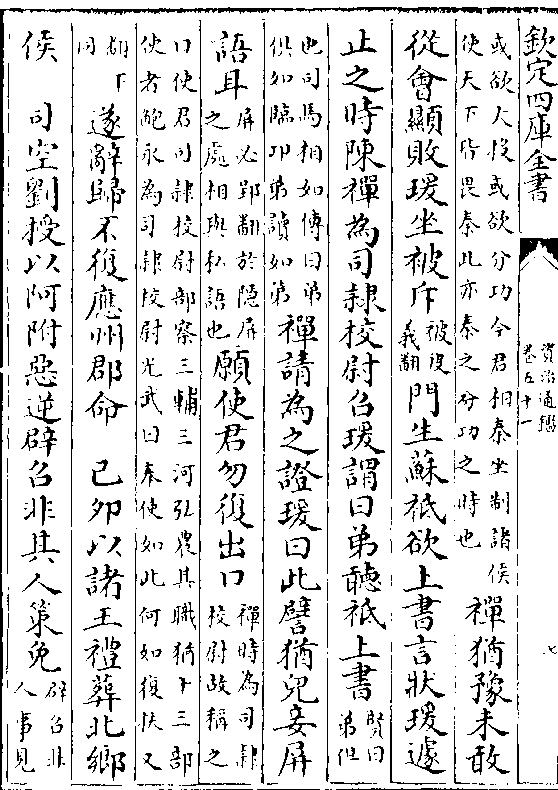 欽定四庫全書
資治通鑑
卷五十一
七
或欲大投或欲分功今君相秦坐制諸侯
使天下皆畏秦此亦秦之分功之時也
禪猶豫未敢
從會顯敗瑗坐被斥
被皮
義翻
門生蘇祇欲上書言狀瑗遽
止之時陳禪為司隸校尉召瑗謂曰弟聽祇上書
賢曰
弟但
也司馬相如傳曰弟
俱如臨邛弟讀如第
禪請為之證瑗曰此譬猶兒妾屏
語耳
屏必郢翻於隱屏
之處相與私語也
願使君勿復出口
禪時為司隸
校尉故稱之
曰使君司隸校尉部察三輔三河弘農其職猶十三部
使者鮑永為司隸校尉光武曰奉使如此何如復扶又
翻下
同
遂辭歸不復應州郡命　己卯以諸王禮葬北鄉
侯　司空劉授以阿附惡逆辟召非其人策免
辟召非
人事見